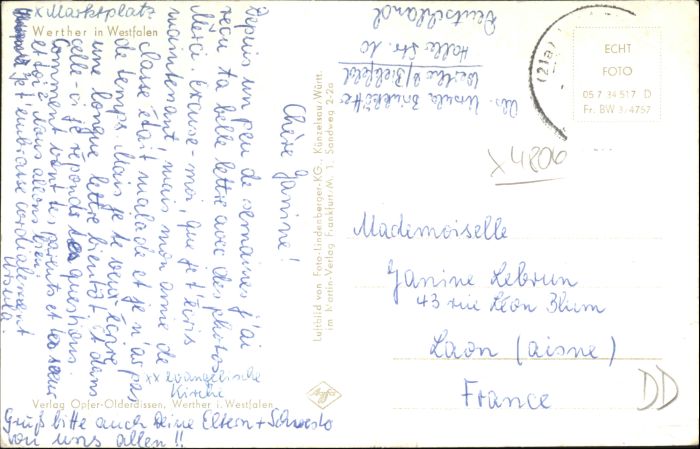 x Marktplatz
Werther in Westfalen
Chère Janine!
Depuis un peu de semaines j'ai
reçu ta belle lettre avec des photos.
Merci. Excuse-moi, que je t'écris
maintenant, mais mon amie de
classe était malade et je n'ai pas
de temps. Mais je te veux écrire
une longue lettre bientôt et dans
celle-ci je réponds tes questions.
Comment vont tes parents et ta sœur
et toi? Nous allons bien.
Je t'embrasse cordialement
Ursula.
xx evangelische
Kirche
Verlag Opfer-Olderdissen, Werther i. Westfalen
Grüß bitte auch Deine Eltern + Schwester
von uns allen!!
Luftbild von Foto-Lindenberger-KG., Künzelsau/Württ.
im Martin-Verlag Frankfurt/M. 1, Sandweg 2-2a
Agfa
Abs. Ursula
Werther b/Bielefeld
Haller Str. 10
Deutschland
(21a)
ECHT
FOTO
05 7 34 517 D
Fr. BW 3/4757
X 90840
Mademoiselle
Janine Lebrun
43 rue Léon Blum
Laon (aisne)
France
DD